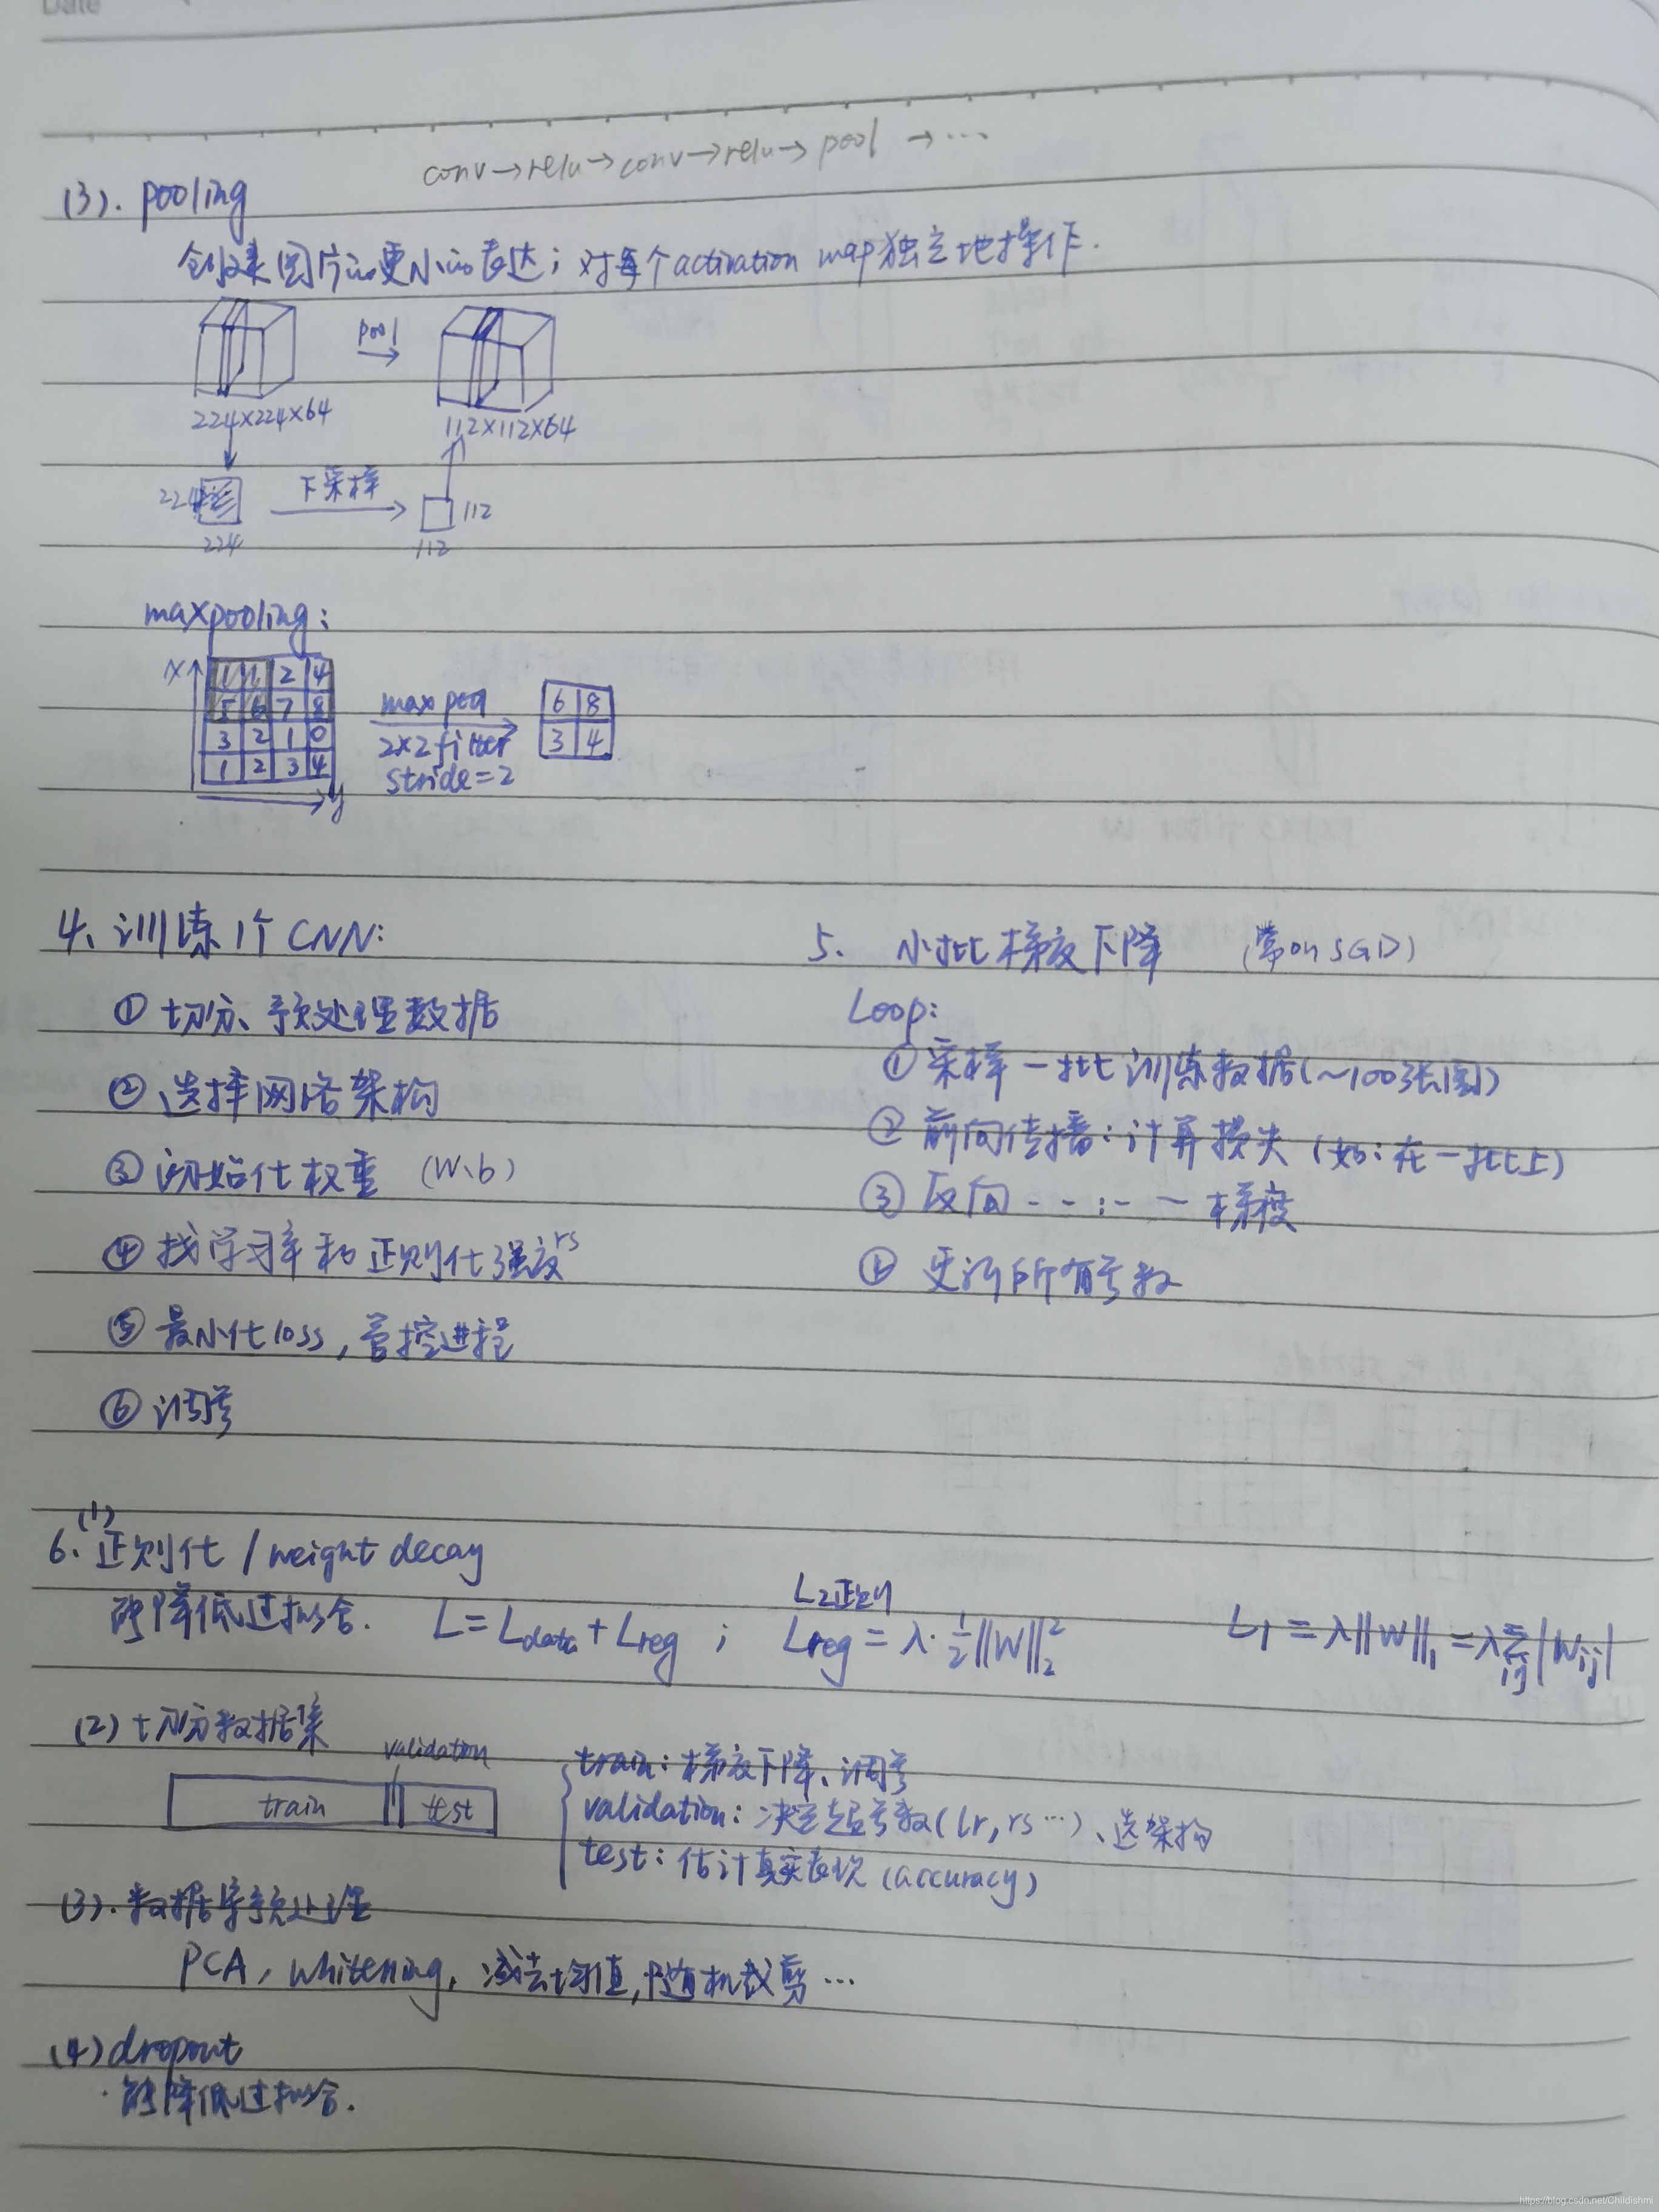 Date
conv→relu→conv→relu→pool→…
(3). pooling
创建图片的更小的表达；对每个activation map独立地操作.
pool
224×224×64
112×112×64
下采样
224
112
224
112
maxpooling:
x
1 1 2 4
5 6 7 8
3 2 1 0
1 2 3 4
y
max pool
2×2 filter
stride=2
6 8
3 4
4、训练1个CNN:
① 切分、预处理数据
② 选择网络架构
③ 初始化权重 (W、b)
④ 找学习率和正则化强度rs
⑤ 最小化loss,管控进程
⑥ 调参
5. 小批梯度下降 (常叫SGD)
Loop:
① 采样一批训练数据(~100张图)
② 前向传播:计算损失 (如:在一批上)
③ 反向--:--梯度
④ 更新所有参数
(1)
6. 正则化/weight decay
能降低过拟合. L=Ldata+Lreg ; Lreg=λ·½||W||₂² L₁=λ||W||₁=λΣij|Wij|
L2正则
(2)切分数据集
validation
train test
train:梯度下降、调参
validation:决定超参数(lr,rs…)、选架构
test:估计真实表现(accuracy)
(3).数据集预处理
PCA, whitening, 减去均值,随机裁剪…
(4)dropout
·能降低过拟合.
https://blog.csdn.net/Childishmi